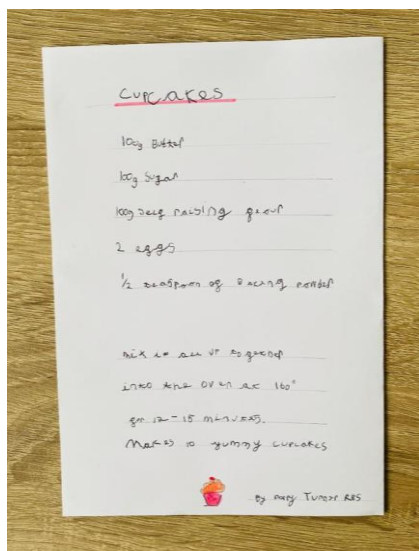 Cupcakes
100g Butter
100g Sugar
100g self raising flour
2 eggs
1/2 teaspoon of Baking Powder
mix it all up together
into the oven at 160°
for 12-15 minutes.
Makes 10 yummy cupcakes
By Turner RBS